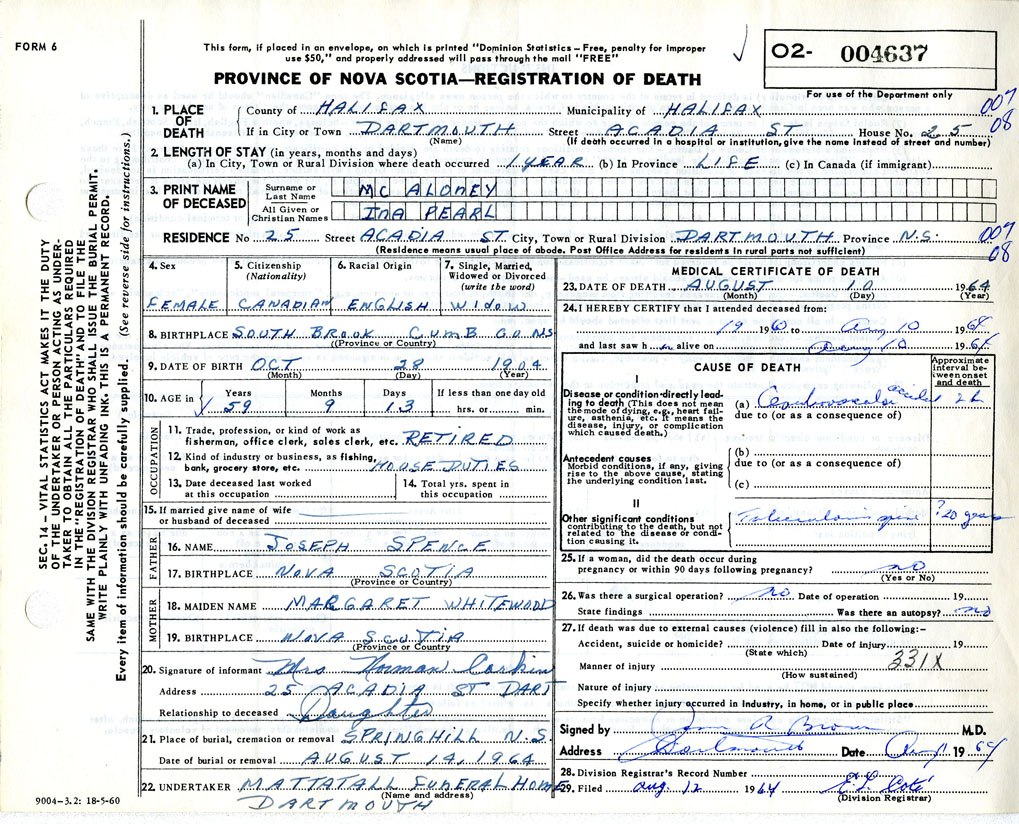 FORM 6
This form, if placed in an envelope, on which is printed "Dominion Statistics – Free, penalty for improper
use $50," and properly addressed will pass through the mail "FREE"
O2- 004637
For use of the Department only
PROVINCE OF NOVA SCOTIA—REGISTRATION OF DEATH
007
08
1. PLACE OF DEATH { County of HALIFAX Municipality of HALIFAX
If in City or Town DARTMOUTH Street ACADIA ST House No. 25
(Name) (If death occurred in a hospital or institution, give the name instead of street and number)
2. LENGTH OF STAY (in years, months and days)
(a) In City, Town or Rural Division where death occurred 1 YEAR (b) In Province LIFE (c) In Canada (if immigrant)
3. PRINT NAME OF DECEASED { Surname or Last Name MC ALONEY
All Given or Christian Names INA PEARL
RESIDENCE No 25 Street ACADIA ST City, Town or Rural Division DARTMOUTH Province N.S.
007
08
(Residence means usual place of abode. Post Office Address for residents in rural parts not sufficient)
SEC. 14 – VITAL STATISTICS ACT MAKES IT THE DUTY
OF THE UNDERTAKER OR PERSON ACTING AS UNDER-
TAKER TO OBTAIN ALL THE PARTICULARS REQUIRED
IN THE "REGISTRATION OF DEATH" AND TO FILE THE
SAME WITH THE DIVISION REGISTRAR WHO SHALL ISSUE THE BURIAL PERMIT.
WRITE PLAINLY WITH UNFADING INK. THIS IS A PERMANENT RECORD.
Every item of information should be carefully supplied. (See reverse side for instructions.)
4. Sex
FEMALE
5. Citizenship (Nationality)
CANADIAN
6. Racial Origin
ENGLISH
7. Single, Married, Widowed or Divorced (write the word)
WIDOW
8. BIRTHPLACE SOUTH BROOK CUMB CO NS
(Province or Country)
9. DATE OF BIRTH OCT 28 1904
(Month) (Day) (Year)
10. AGE in { Years Months Days If less than one day old
59 9 13 hrs. or min.
OCCUPATION
11. Trade, profession, or kind of work as
fisherman, office clerk, sales clerk, etc. RETIRED
12. Kind of industry or business, as fishing,
bank, grocery store, etc. HOUSE DUTIES
13. Date deceased last worked
at this occupation
14. Total yrs. spent in
this occupation
15. If married give name of wife
or husband of deceased
FATHER
16. NAME JOSEPH SPENCE
17. BIRTHPLACE NOVA SCOTIA
(Province or Country)
MOTHER
18. MAIDEN NAME MARGARET WHITEWOOD
19. BIRTHPLACE NOVA SCOTIA
(Province or Country)
20. Signature of informant Mrs Norman Corkin
Address 25 ACADIA ST DART
Relationship to deceased Daughter
21. Place of burial, cremation or removal SPRINGHILL N.S.
Date of burial or removal AUGUST 14, 1964
22. UNDERTAKER MATTATALL FUNERAL HOME
(Name and address)
DARTMOUTH
9004-3.2: 18-5-60
MEDICAL CERTIFICATE OF DEATH
23. DATE OF DEATH AUGUST 10 1964
(Month) (Day) (Year)
24. I HEREBY CERTIFY that I attended deceased from:
1960 to Aug 10 1964
and last saw h alive on Aug 10 1964
CAUSE OF DEATH
Approximate interval between onset and death
I
Disease or condition directly leading to death (This does not mean the mode of dying, e.g., heart failure, asthenia, etc. It means the disease, injury, or complication which caused death.)
(a) Cerebrovascular accident 2 h
due to (or as a consequence of)
Antecedent causes
Morbid conditions, if any, giving rise to the above cause, stating the underlying condition last.
(b)
due to (or as a consequence of)
(c)
II
Other significant conditions
contributing to the death, but not related to the disease or condition causing it.
Tuberculosis spine ? 20 years
25. If a woman, did the death occur during
pregnancy or within 90 days following pregnancy? no
(Yes or No)
26. Was there a surgical operation? no Date of operation 19
State findings Was there an autopsy? no
27. If death was due to external causes (violence) fill in also the following:–
Accident, suicide or homicide? Date of injury 19
(State which)
331X
Manner of injury
(How sustained)
Nature of injury
Specify whether injury occurred in industry, in home, or in public place
Signed by A Brown M.D.
Address Dartmouth Date Aug 11 1964
28. Division Registrar's Record Number
29. Filed Aug. 12 1964 E. L. Coté
(Division Registrar)